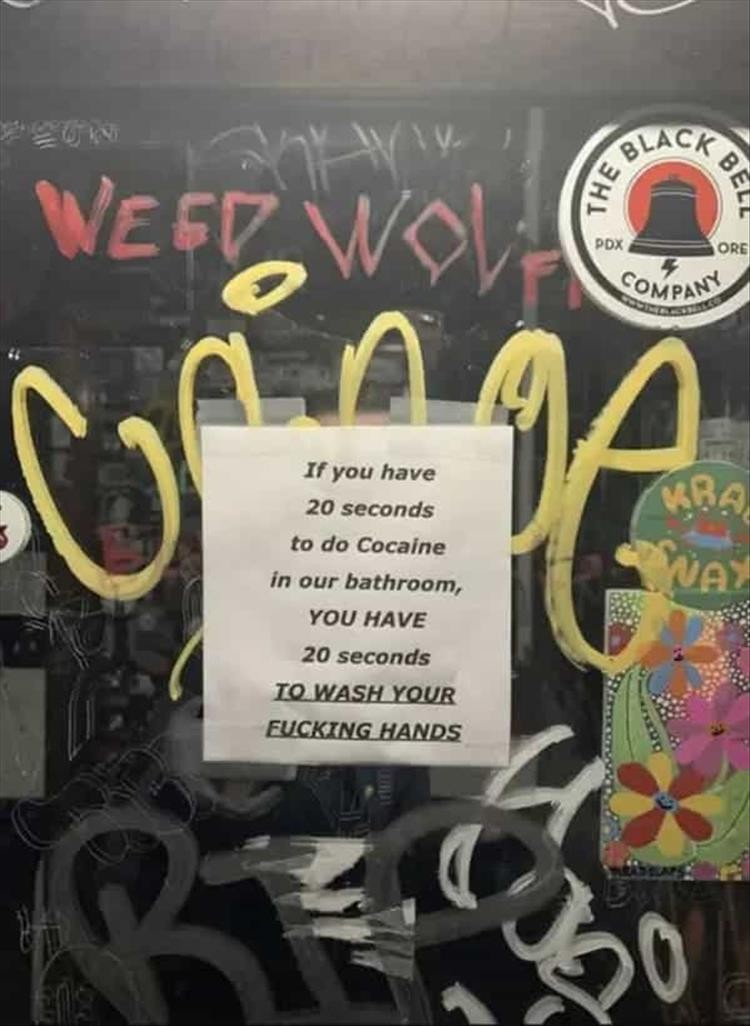 WEED WOLF
THE BLACK BELL
PDX
ORE
COMPANY
If you have
20 seconds
to do Cocaine
in our bathroom,
YOU HAVE
20 seconds
TO WASH YOUR
FUCKING HANDS
KRA
WAY
RIP